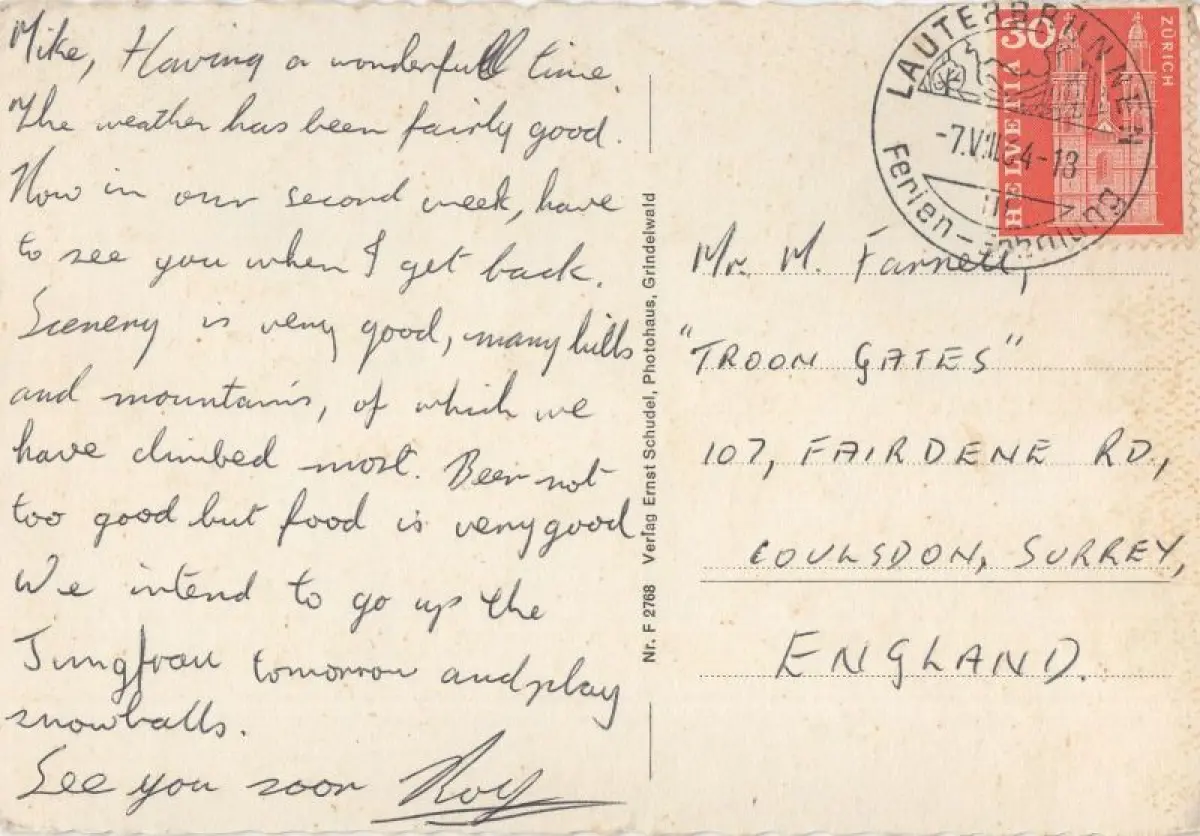 Mike, Having a wonderfull time.
The weather has been fairly good.
Now in our second week, have
to see you when I get back.
Scenery is very good, many hills
and mountains, of which we
have climbed most. Beer not
too good but food is very good
We intend to go up the
Jungfrau tomorrow and play
snowballs.
See you soon Roy
Nr. F 2768 Verlag Ernst Schudel, Photohaus, Grindelwald
LAUTERBRUNNEN
-7.VIII.64-18
Ferien-
30
HELVETIA
ZÜRICH
Mr. M. Farnell,
"TROON GATES"
107, FAIRDENE RD.,
COULSDON, SURREY,
ENGLAND.